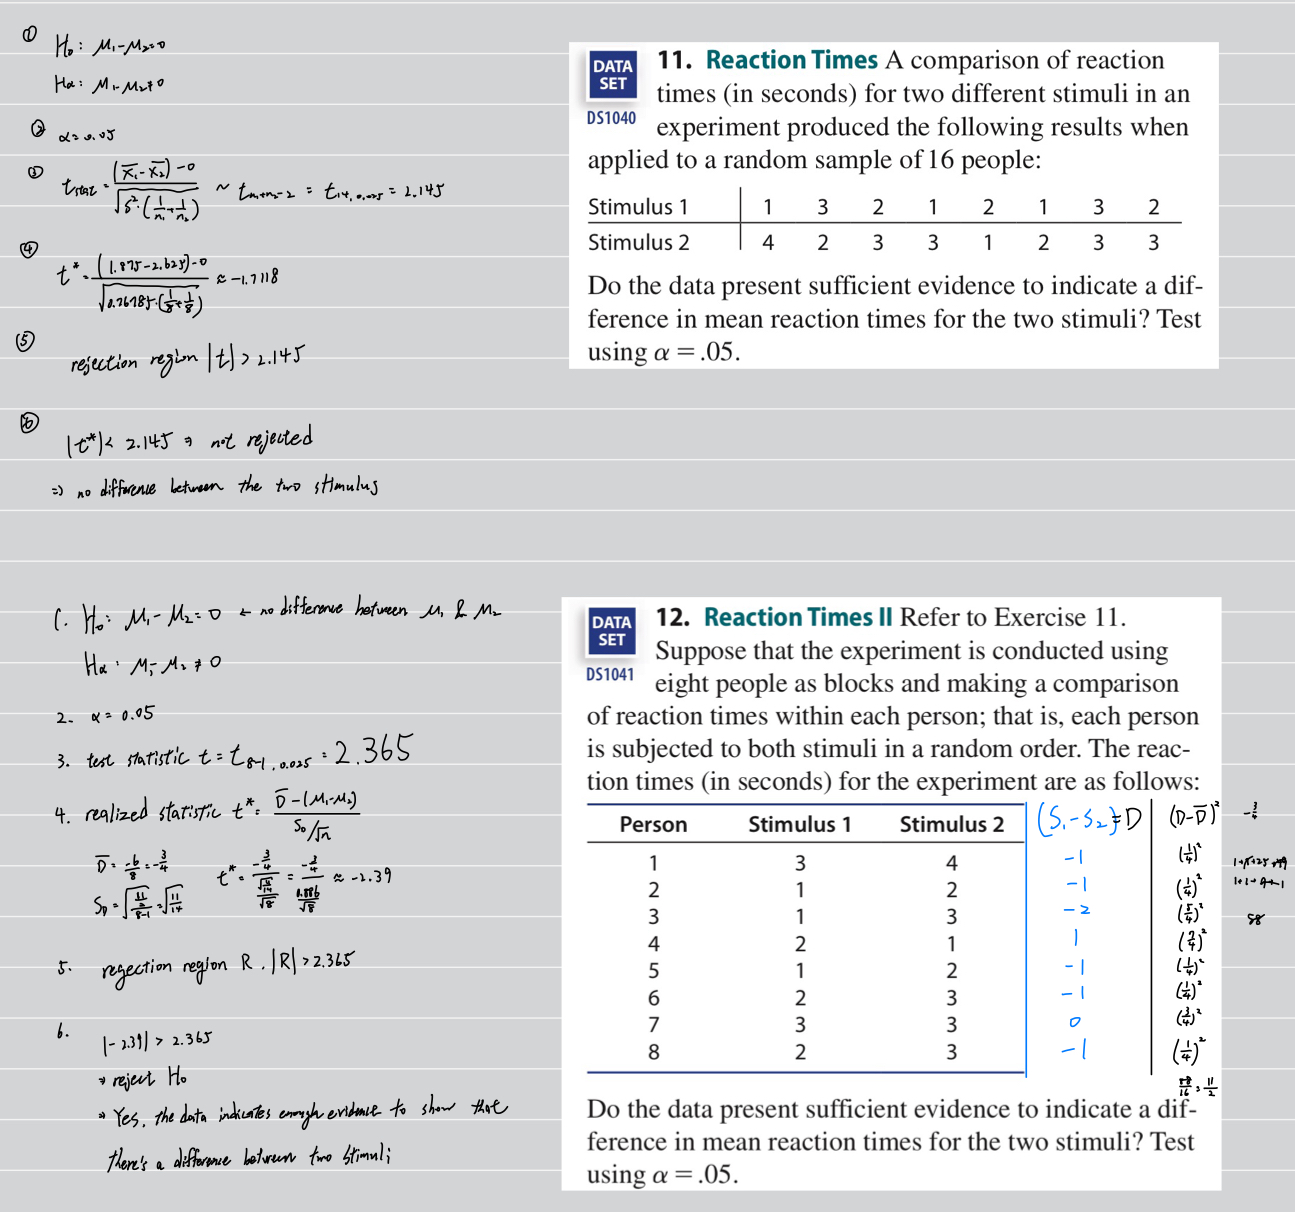 ①
H₀: μ₁-μ₂=0
Hα: μ₁-μ₂≠0
② α=0.05
③ t_stat = ((x̄₁-x̄₂)-0)/√(s²·(1/n₁+1/n₂)) ~ t_n₁+n₂-2 = t_14,0.025 = 2.145
④ t* = ((1.875-2.625)-0)/√(0.76785·(1/8+1/8)) ≈ -1.7118
⑤ rejection region |t| > 2.145
⑥ |t*| < 2.145 ⇒ not rejected
⇒ no difference between the two stimulus
DATA SET
DS1040
11. Reaction Times A comparison of reaction
times (in seconds) for two different stimuli in an
experiment produced the following results when
applied to a random sample of 16 people:
Stimulus 1 1 3 2 1 2 1 3 2
Stimulus 2 4 2 3 3 1 2 3 3
Do the data present sufficient evidence to indicate a dif-
ference in mean reaction times for the two stimuli? Test
using α = .05.
1. H₀: μ₁-μ₂=0 ← no difference between μ₁ & μ₂
Hα: μ₁-μ₂≠0
2. α = 0.05
3. test statistic t = t_8-1,0.025 = 2.365
4. realized statistic t* = (D̄-(μ₁-μ₂))/(S_D/√n)
D̄ = -6/8 = -3/4
S_D = √((11/2)/(8-1)) = √(11/14)
t* = (-3/4)/(√(11/14)/√8) = (-3/4)/(0.886/√8) ≈ -2.39
5. regection region R. |R| > 2.365
6. |-2.39| > 2.365
⇒ reject H₀
⇒ Yes, the data indicates enough evidence to show that
there's a difference between two stimuli
DATA SET
DS1041
12. Reaction Times II Refer to Exercise 11.
Suppose that the experiment is conducted using
eight people as blocks and making a comparison
of reaction times within each person; that is, each person
is subjected to both stimuli in a random order. The reac-
tion times (in seconds) for the experiment are as follows:
Person Stimulus 1 Stimulus 2 (S₁-S₂)=D (D-D̄)² -3/4
1 3 4 -1 (1/4)²
2 1 2 -1 (1/4)²
3 1 3 -2 (5/4)²
4 2 1 1 (7/4)²
5 1 2 -1 (1/4)²
6 2 3 -1 (1/4)²
7 3 3 0 (3/4)²
8 2 3 -1 (1/4)²
88/16 = 11/2
Do the data present sufficient evidence to indicate a dif-
ference in mean reaction times for the two stimuli? Test
using α = .05.